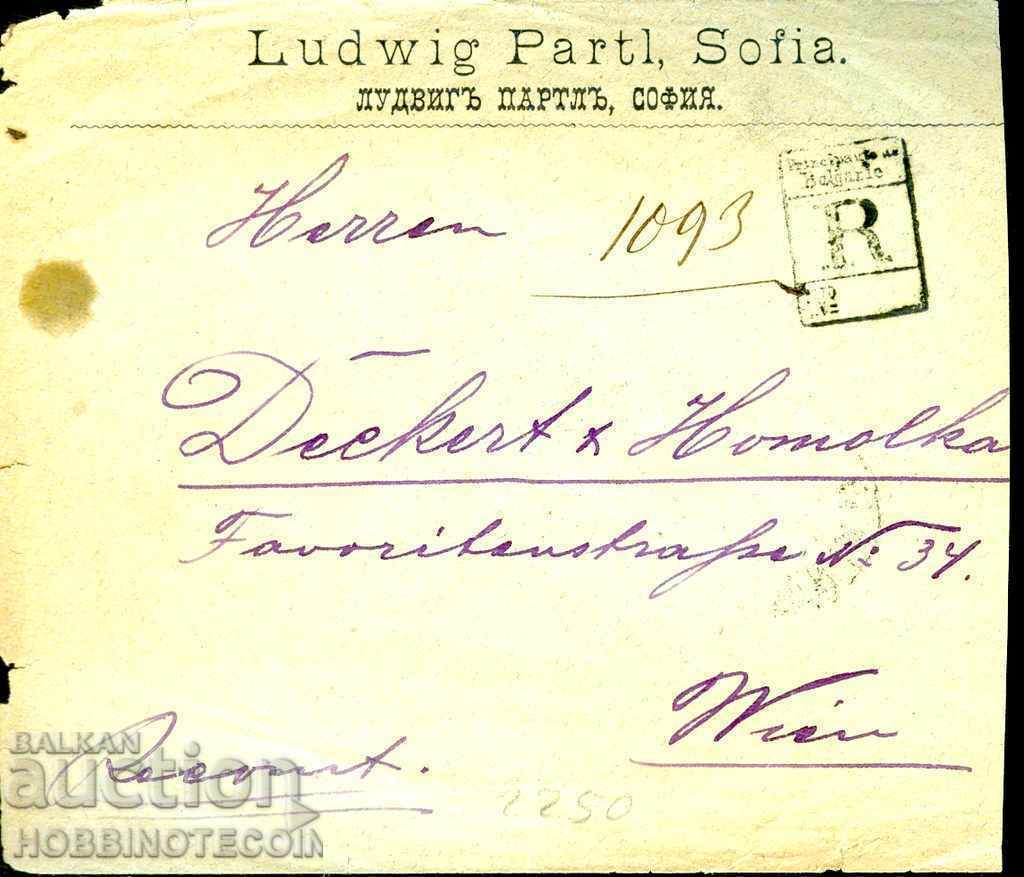 Ludwig Partl, Sofia.
ЛУДВИГЪ ПАРТЛЪ, СОФИЯ.
Principauté de
Bulgarie
R
№
Herren
1093
Deckert & Homolka
Favoritenstraße № 34.
Wien
Recomt.
2250
BALKAN
auction
HOBBINOTECOIN